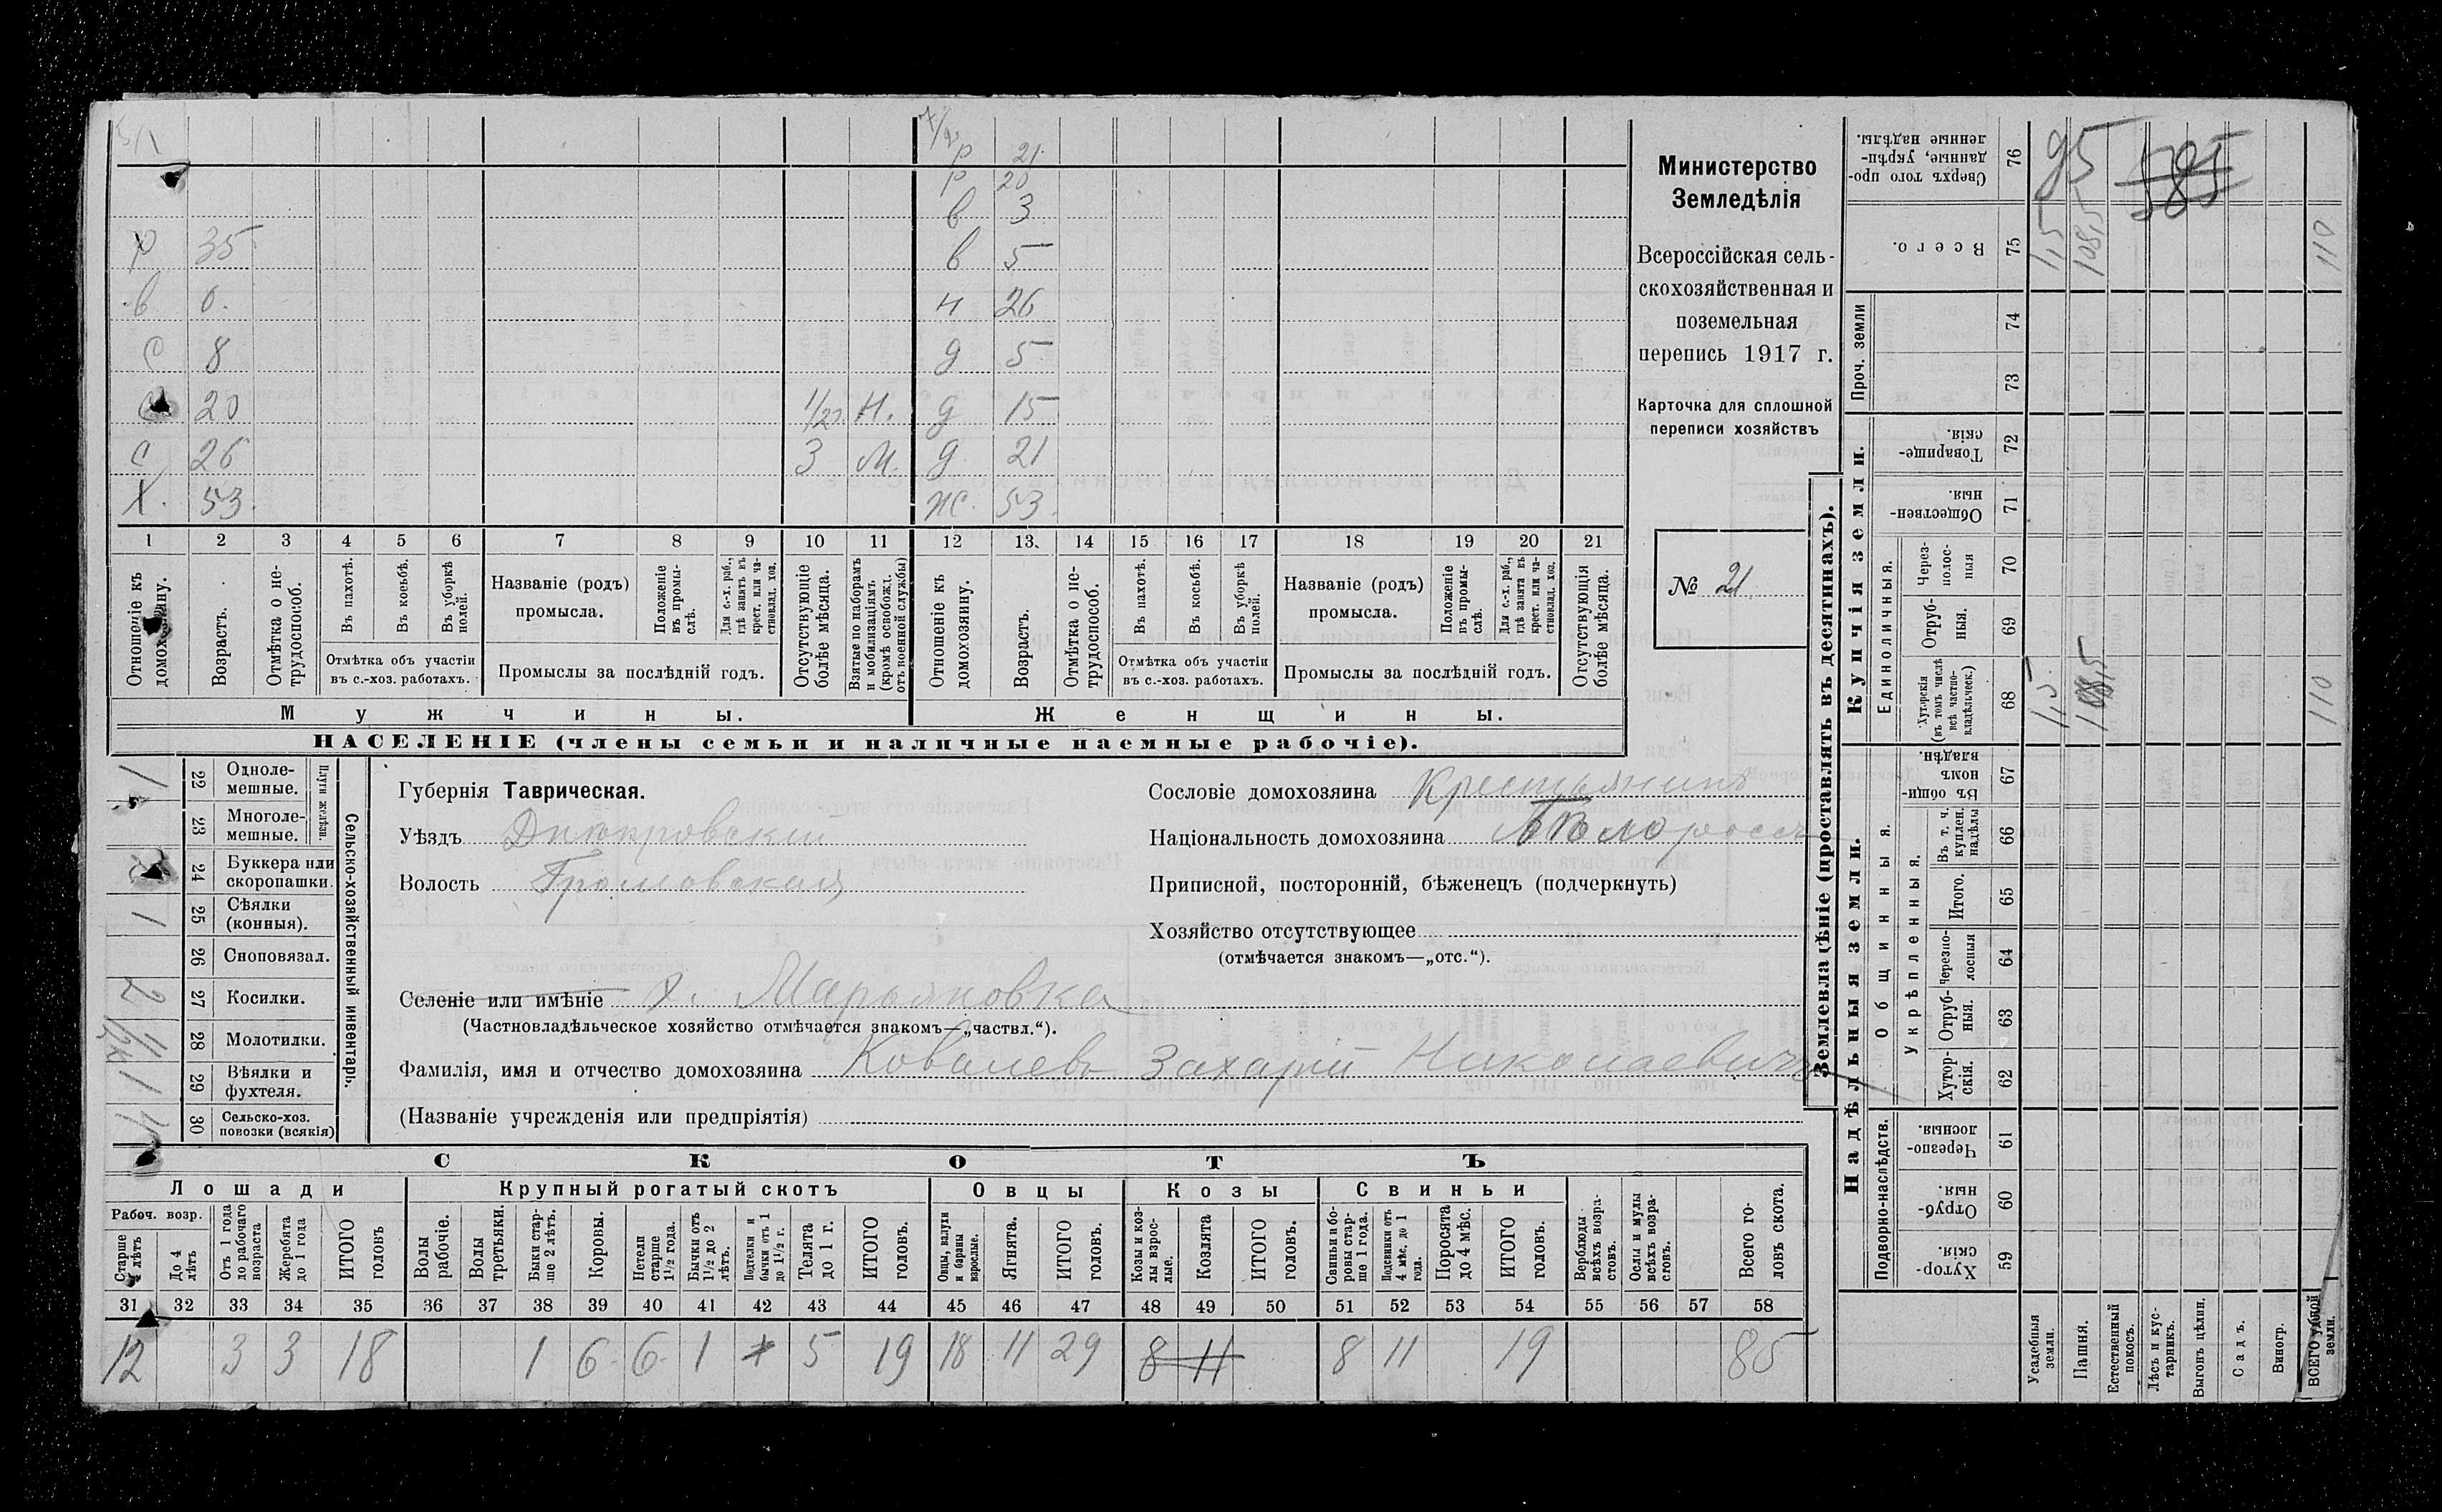 5/1
7/2
р 21.
р 20
в 3
р 35 в 5
в 6. н 26
с 8 д 5
с 20 1/2 г. Н. д 15
с 26 3 М. д 21
Х. 53. ж. 53.
1 2 3 4 5 6 7 8 9 10 11 12 13. 14 15 16 17 18 19 20 21
Отношеніе къ домохозяину.
Возрастъ.
Отмѣтка о нетрудоспособ.
Въ пахотѣ.
Въ косьбѣ.
Въ уборкѣ полей.
Отмѣтка объ участіи въ с.-хоз. работахъ.
Названіе (родъ) промысла.
Положеніе въ промыслѣ.
Для с.-х. раб., гдѣ занятъ въ крест. или частновлад. хоз.
Промыслы за послѣдній годъ.
Отсутствующіе болѣе мѣсяца.
Взятые по наборамъ и мобилизаціямъ (кромѣ освобожд. отъ военной службы)
Отношеніе къ домохозяину.
Возрастъ.
Отмѣтка о нетрудоспособ.
Въ пахотѣ.
Въ косьбѣ.
Въ уборкѣ полей.
Отмѣтка объ участіи въ с.-хоз. работахъ.
Названіе (родъ) промысла.
Положеніе въ промыслѣ.
Для с.-х. раб., гдѣ занята въ крест. или частновлад. хоз.
Промыслы за послѣдній годъ.
Отсутствующія болѣе мѣсяца.
Мужчины. Женщины.
НАСЕЛЕНІЕ (члены семьи и наличные наемные рабочіе).
Министерство
Земледѣлія
Всероссійская сель-
скохозяйственная и
поземельная
перепись 1917 г.
Карточка для сплошной
переписи хозяйствъ
№ 21
Сельско-хозяйственный инвентарь.
Плуги желѣзн.
22 Одноле-мешные. 1
23 Многоле-мешные.
24 Буккера или скоропашки.
25 Сѣялки (конныя). 1
26 Сноповязал.
27 Косилки. 2
28 Молотилки.
29 Вѣялки и фухтеля. 1
30 Сельско-хоз. повозки (всякія)
Губернія Таврическая.
Уѣздъ Днѣпровскій
Волость Громовская
Сословіе домохозяина Крестьянинъ
Національность домохозяина Малороссъ
Приписной, посторонній, бѣженецъ (подчеркнуть)
Хозяйство отсутствующее
(отмѣчается знакомъ—„отс.“).
Селеніе или имѣніе х. Марьяновка
(Частновладѣльческое хозяйство отмѣчается знакомъ—„частвл.“).
Фамилія, имя и отчество домохозяина Ковалевъ Захарій Николаевичъ
(Названіе учрежденія или предпріятія)
СКОТЪ
Лошади Крупный рогатый скотъ Овцы Козы Свиньи
Рабоч. возр.
Старше 4 лѣтъ
До 4 лѣтъ
Отъ 1 года до рабочаго возраста
Жеребята до 1 года
ИТОГО головъ
Волы рабочіе.
Волы третьяки.
Быки старше 2 лѣтъ.
Коровы.
Нетели старше 1½ года.
Бычки отъ 1½ до 2 лѣтъ.
Подтелки и бычки отъ 1 до 1½ г.
Телята до 1 г.
ИТОГО головъ.
Овцы, валухи и бараны взрослые.
Ягнята.
ИТОГО головъ.
Козы и козлы взрослые.
Козлята
ИТОГО головъ.
Свиньи и боровы старше 1 года.
Подсвинки отъ 4 мѣс. до 1 года.
Поросята до 4 мѣс.
ИТОГО головъ.
Верблюды всѣхъ возрастовъ.
Ослы и мулы всѣхъ возрастовъ.
Всего головъ скота.
31 32 33 34 35 36 37 38 39 40 41 42 43 44 45 46 47 48 49 50 51 52 53 54 55 56 57 58
12 3 3 18 1 6 6 1 5 19 18 11 29 8 11 8 11 19 85
Землевладѣніе (проставлять въ десятинахъ).
Купчія земли.
Надѣльныя земли.
Сверхъ того проданные, укрѣпленные надѣлы. 76
Всего. 75
Проч. земли 74 73
Товарищескія. 72
Общественныя. 71
Единоличныя.
Черезполосныя 70
Отрубныя. 69
Хуторскія (въ томъ числѣ всѣ частновладѣльческ.) 68
Общинныя.
Въ общинномъ владѣн. 67
Укрѣпленныя.
Въ т. ч. куплен. надѣлы 66
Итого. 65
Черезполосныя 64
Отрубныя. 63
Хуторскія. 62
Подворно-наслѣдств.
Черезполосныя. 61
Отрубныя. 60
Хуторскія. 59
95 585
1,5 108,5 110
1,5 108,5 110
Усадебныя земли.
Пашня.
Естественный покосъ.
Лѣсъ и кустарникъ.
Выгонъ цѣлин.
Садъ.
Виногр.
ВСЕГО удобной земли.